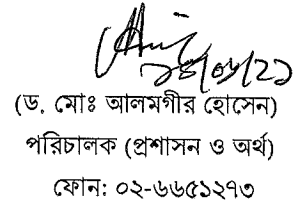 (ড. মোঃ আলমগীর হোসেন)
পরিচালক (প্রশাসন ও অর্থ)
ফোন: ০২-৬৬৫১২৭৩